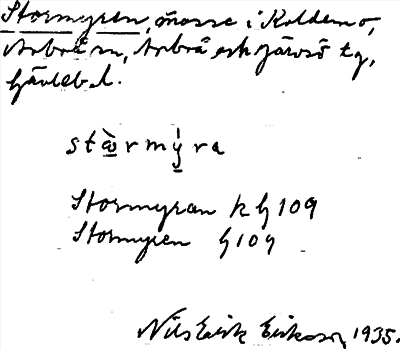 Stormyren, mosse i Koldemo,
Arbrå sn, Arbrå och Järvsö tg,
Gävleb. l.
stὼrmý̱ra
Stormyran k G 109
Stormyren G 109
Nils Erik Eriksson 1935.